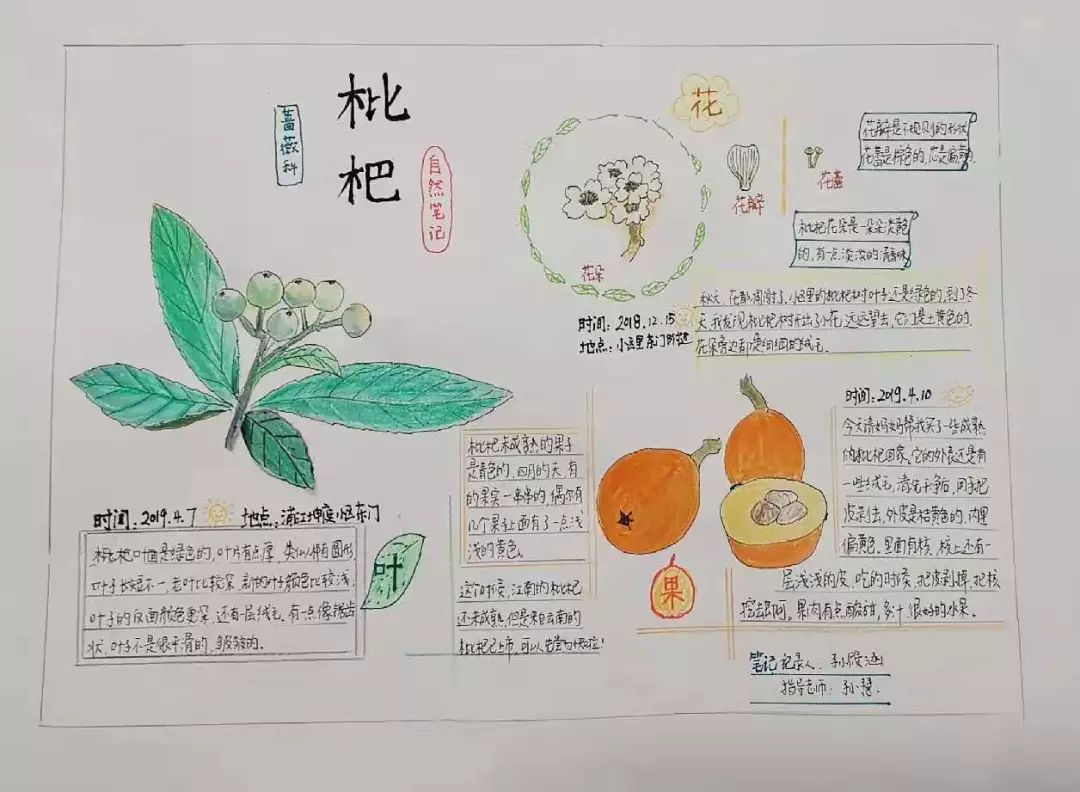 枇
杷
蔷薇科
自然笔记
花
花朵
花瓣
花蕾
花瓣是不规则的形状
花蕾是棕色的,芯是偏黄
枇杷花朵是一朵朵淡黄色
的,有一点淡淡的清香味
时间:2018.12.15
地点:小区里东门附近
秋天,花都凋谢了,小区里的枇杷树叶子还是绿色的,到了冬
天,我发现枇杷树开出了小花,远远望去,它们是土黄色的,
花朵旁边都是细细的绒毛。
时间:2019.4.7
地点:浦江坤庭小区东门
枇杷叶面是绿色的,叶片有点厚,类似椭圆形
叶子长短不一,老叶比较深,新的叶子颜色比较浅,
叶子的反面颜色更深,还有层绒毛,有一点像锯齿
状,叶子不是很平滑的,皱皱的。
叶
枇杷未成熟的果子
是青色的,四月的天,有
的果实一串串的,偶尔有
几个果补上面有了一点浅
浅的黄色。
这个时候,江南的枇杷
还未成熟,但是来自云南的
枇杷已上市,可以先尝为快啦!
果
时间:2019.4.10
今天请妈妈帮我买了一些成熟
的枇杷回家,它的外表还是有
一些绒毛,清洗干净后,用手把
皮剥去,外皮是桔黄色的,内里
偏黄色。里面有核,核上还有一
层浅浅的皮,吃的时候,把皮剥掉,把核
挖去即可。果肉有点酸甜,多汁,很好的水果。
笔记记录人:孙俊涵
指导老师:孙慧